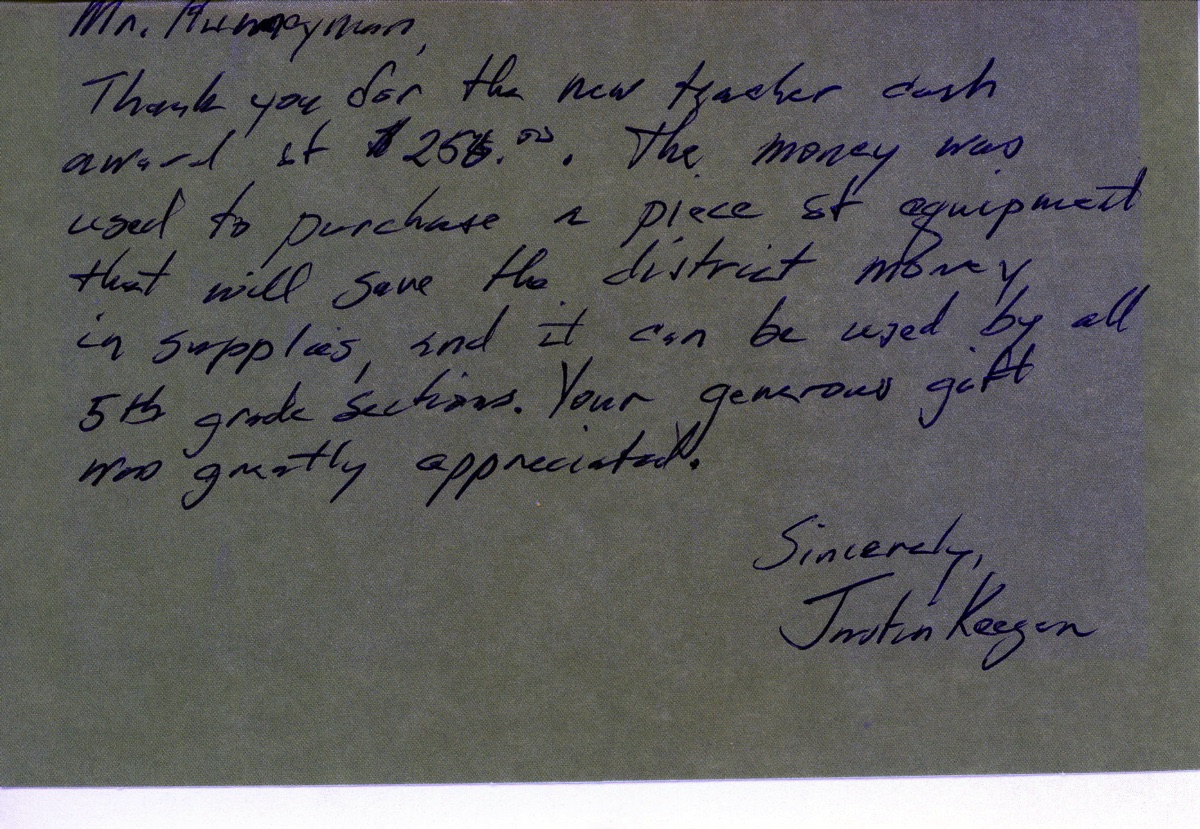 Mr.
Thank you for the new teacher cash
award of $250.00. The money was
used to purchase a piece of equipment
that will save the district money
in supplies, and it can be used by all
5th grade sections. Your generous gift
was greatly appreciated.
Sincerely,
Justin Keegan